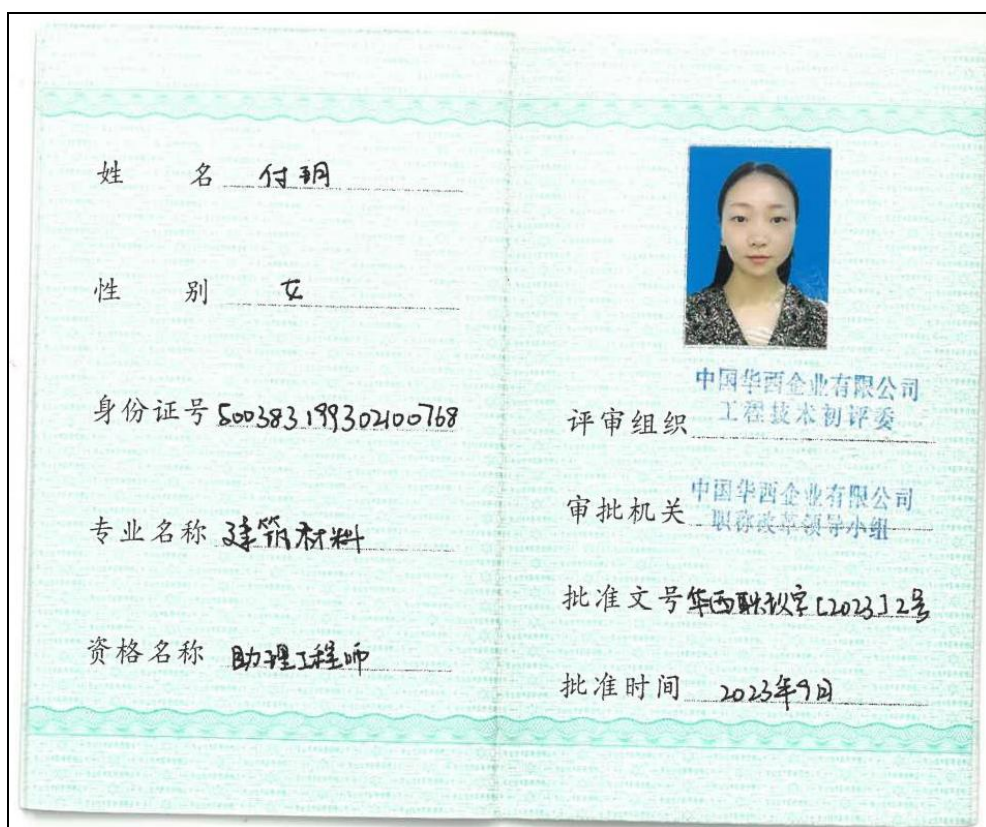 姓名 付玥
性别 女
身份证号 500383199302100768
专业名称 建筑材料
资格名称 助理工程师
中国华西企业有限公司
评审组织 工程技术初评委
中国华西企业有限公司
审批机关 职称改革领导小组
批准文号 华西职改字[2023]2号
批准时间 2023年9月